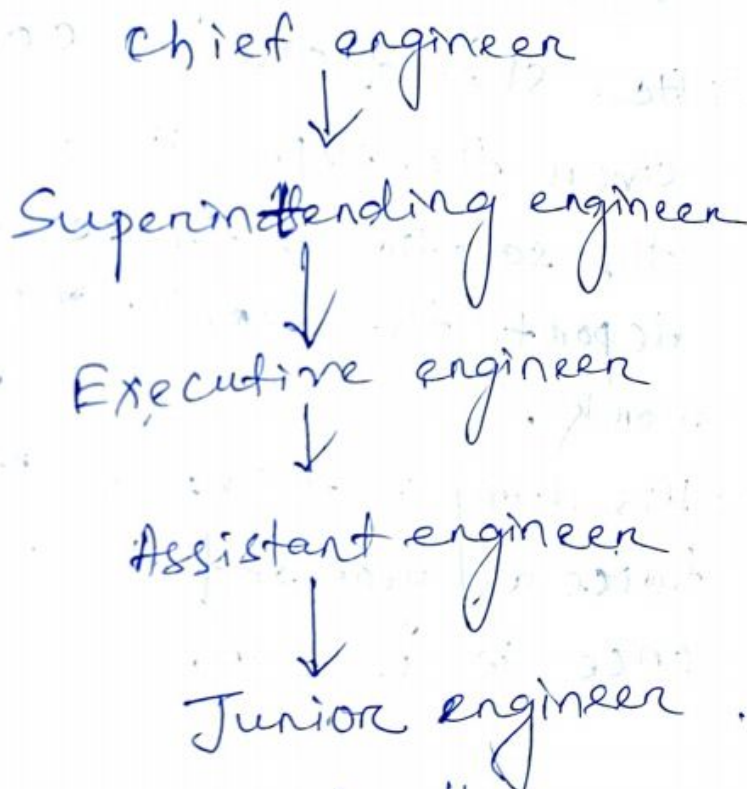 Chief engineer
↓
Superintending engineer
↓
Executive engineer
↓
Assistant engineer
↓
Junior engineer.